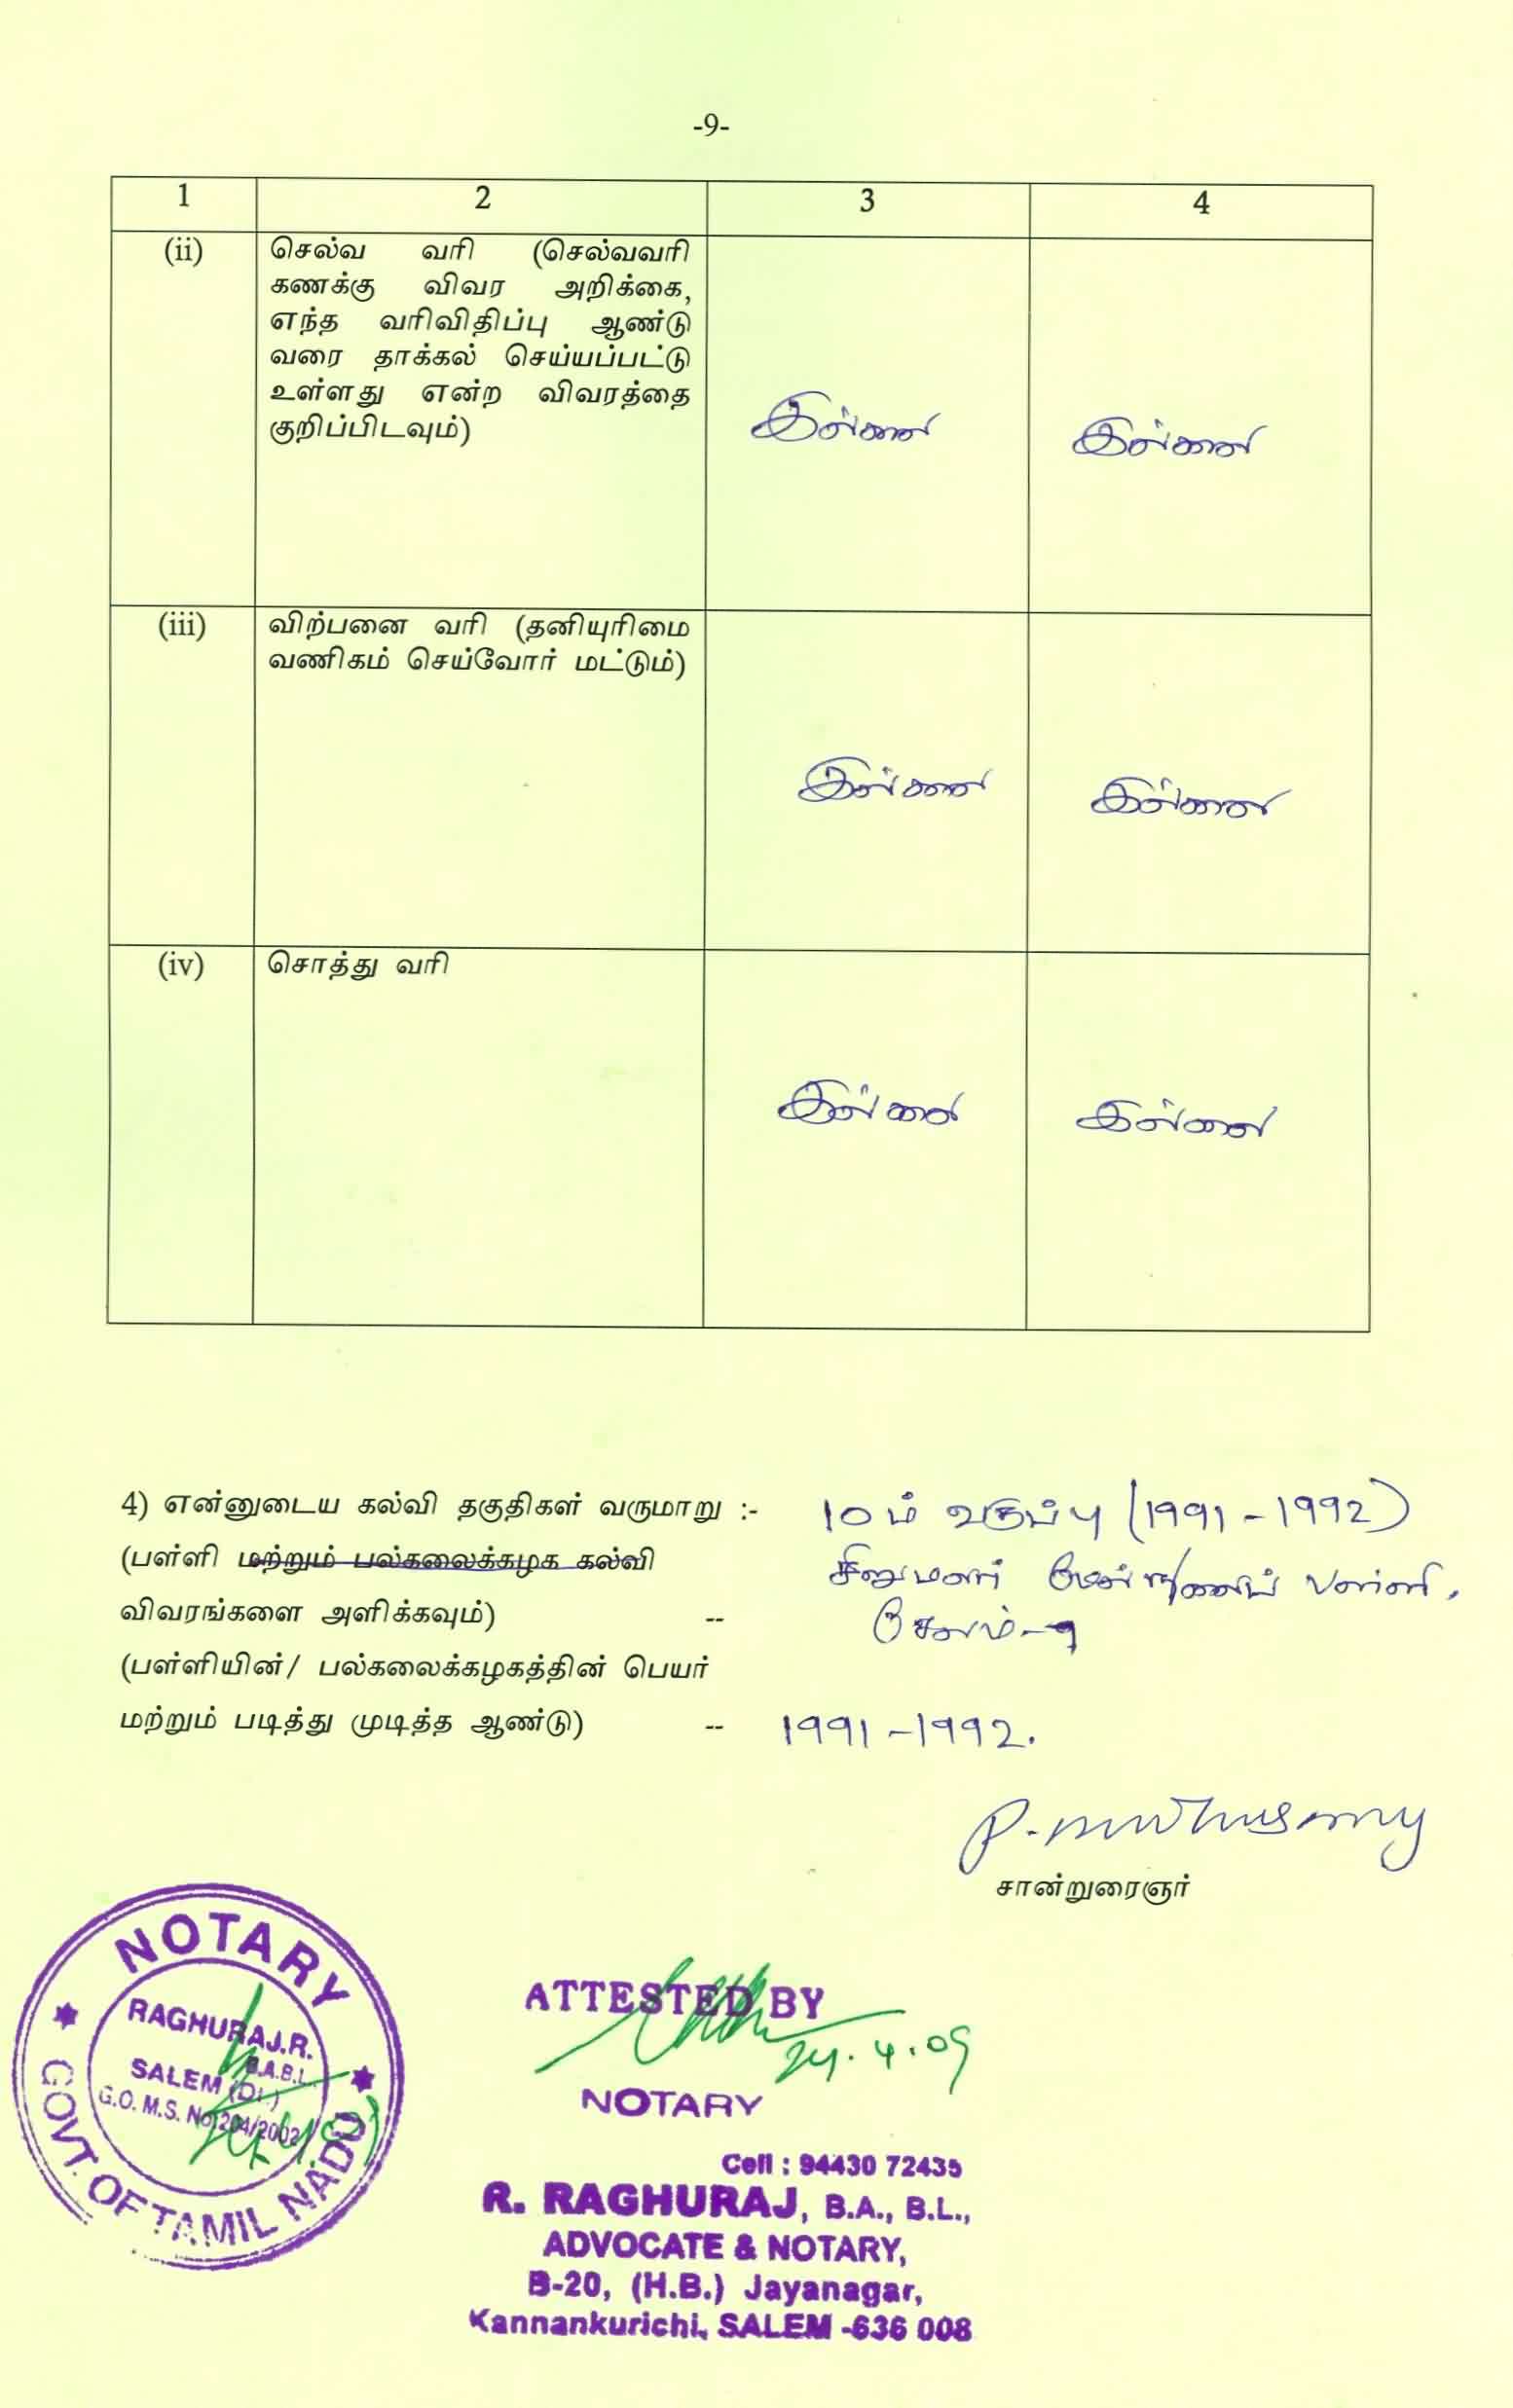 -9-
1 2 3 4
(ii) செல்வ வரி (செல்வவரி
கணக்கு விவர அறிக்கை,
எந்த வரிவிதிப்பு ஆண்டு
வரை தாக்கல் செய்யப்பட்டு
உள்ளது என்ற விவரத்தை
குறிப்பிடவும்)
இல்லை இல்லை
(iii) விற்பனை வரி (தனியுரிமை
வணிகம் செய்வோர் மட்டும்)
இல்லை இல்லை
(iv) சொத்து வரி
இல்லை இல்லை
4) என்னுடைய கல்வி தகுதிகள் வருமாறு :- 10ம் வகுப்பு (1991-1992)
(பள்ளி மற்றும் பல்கலைக்கழக கல்வி
சிறுமலர் மேல்நிலைப் பள்ளி,
விவரங்களை அளிக்கவும்) --
சேலம்-
(பள்ளியின்/ பல்கலைக்கழகத்தின் பெயர்
மற்றும் படித்து முடித்த ஆண்டு) -- 1991-1992.
P. Muthusamy
சான்றுரைஞர்
NOTARY
RAGHURAJ.R.
B.A.B.L.
SALEM (Dt.)
G.O. M.S. No 204/2002
GOVT. OF TAMIL NADU
ATTESTED BY
24.4.09
NOTARY
Cell : 94430 72435
R. RAGHURAJ, B.A., B.L.,
ADVOCATE & NOTARY,
B-20, (H.B.) Jayanagar,
Kannankurichi, SALEM -636 008